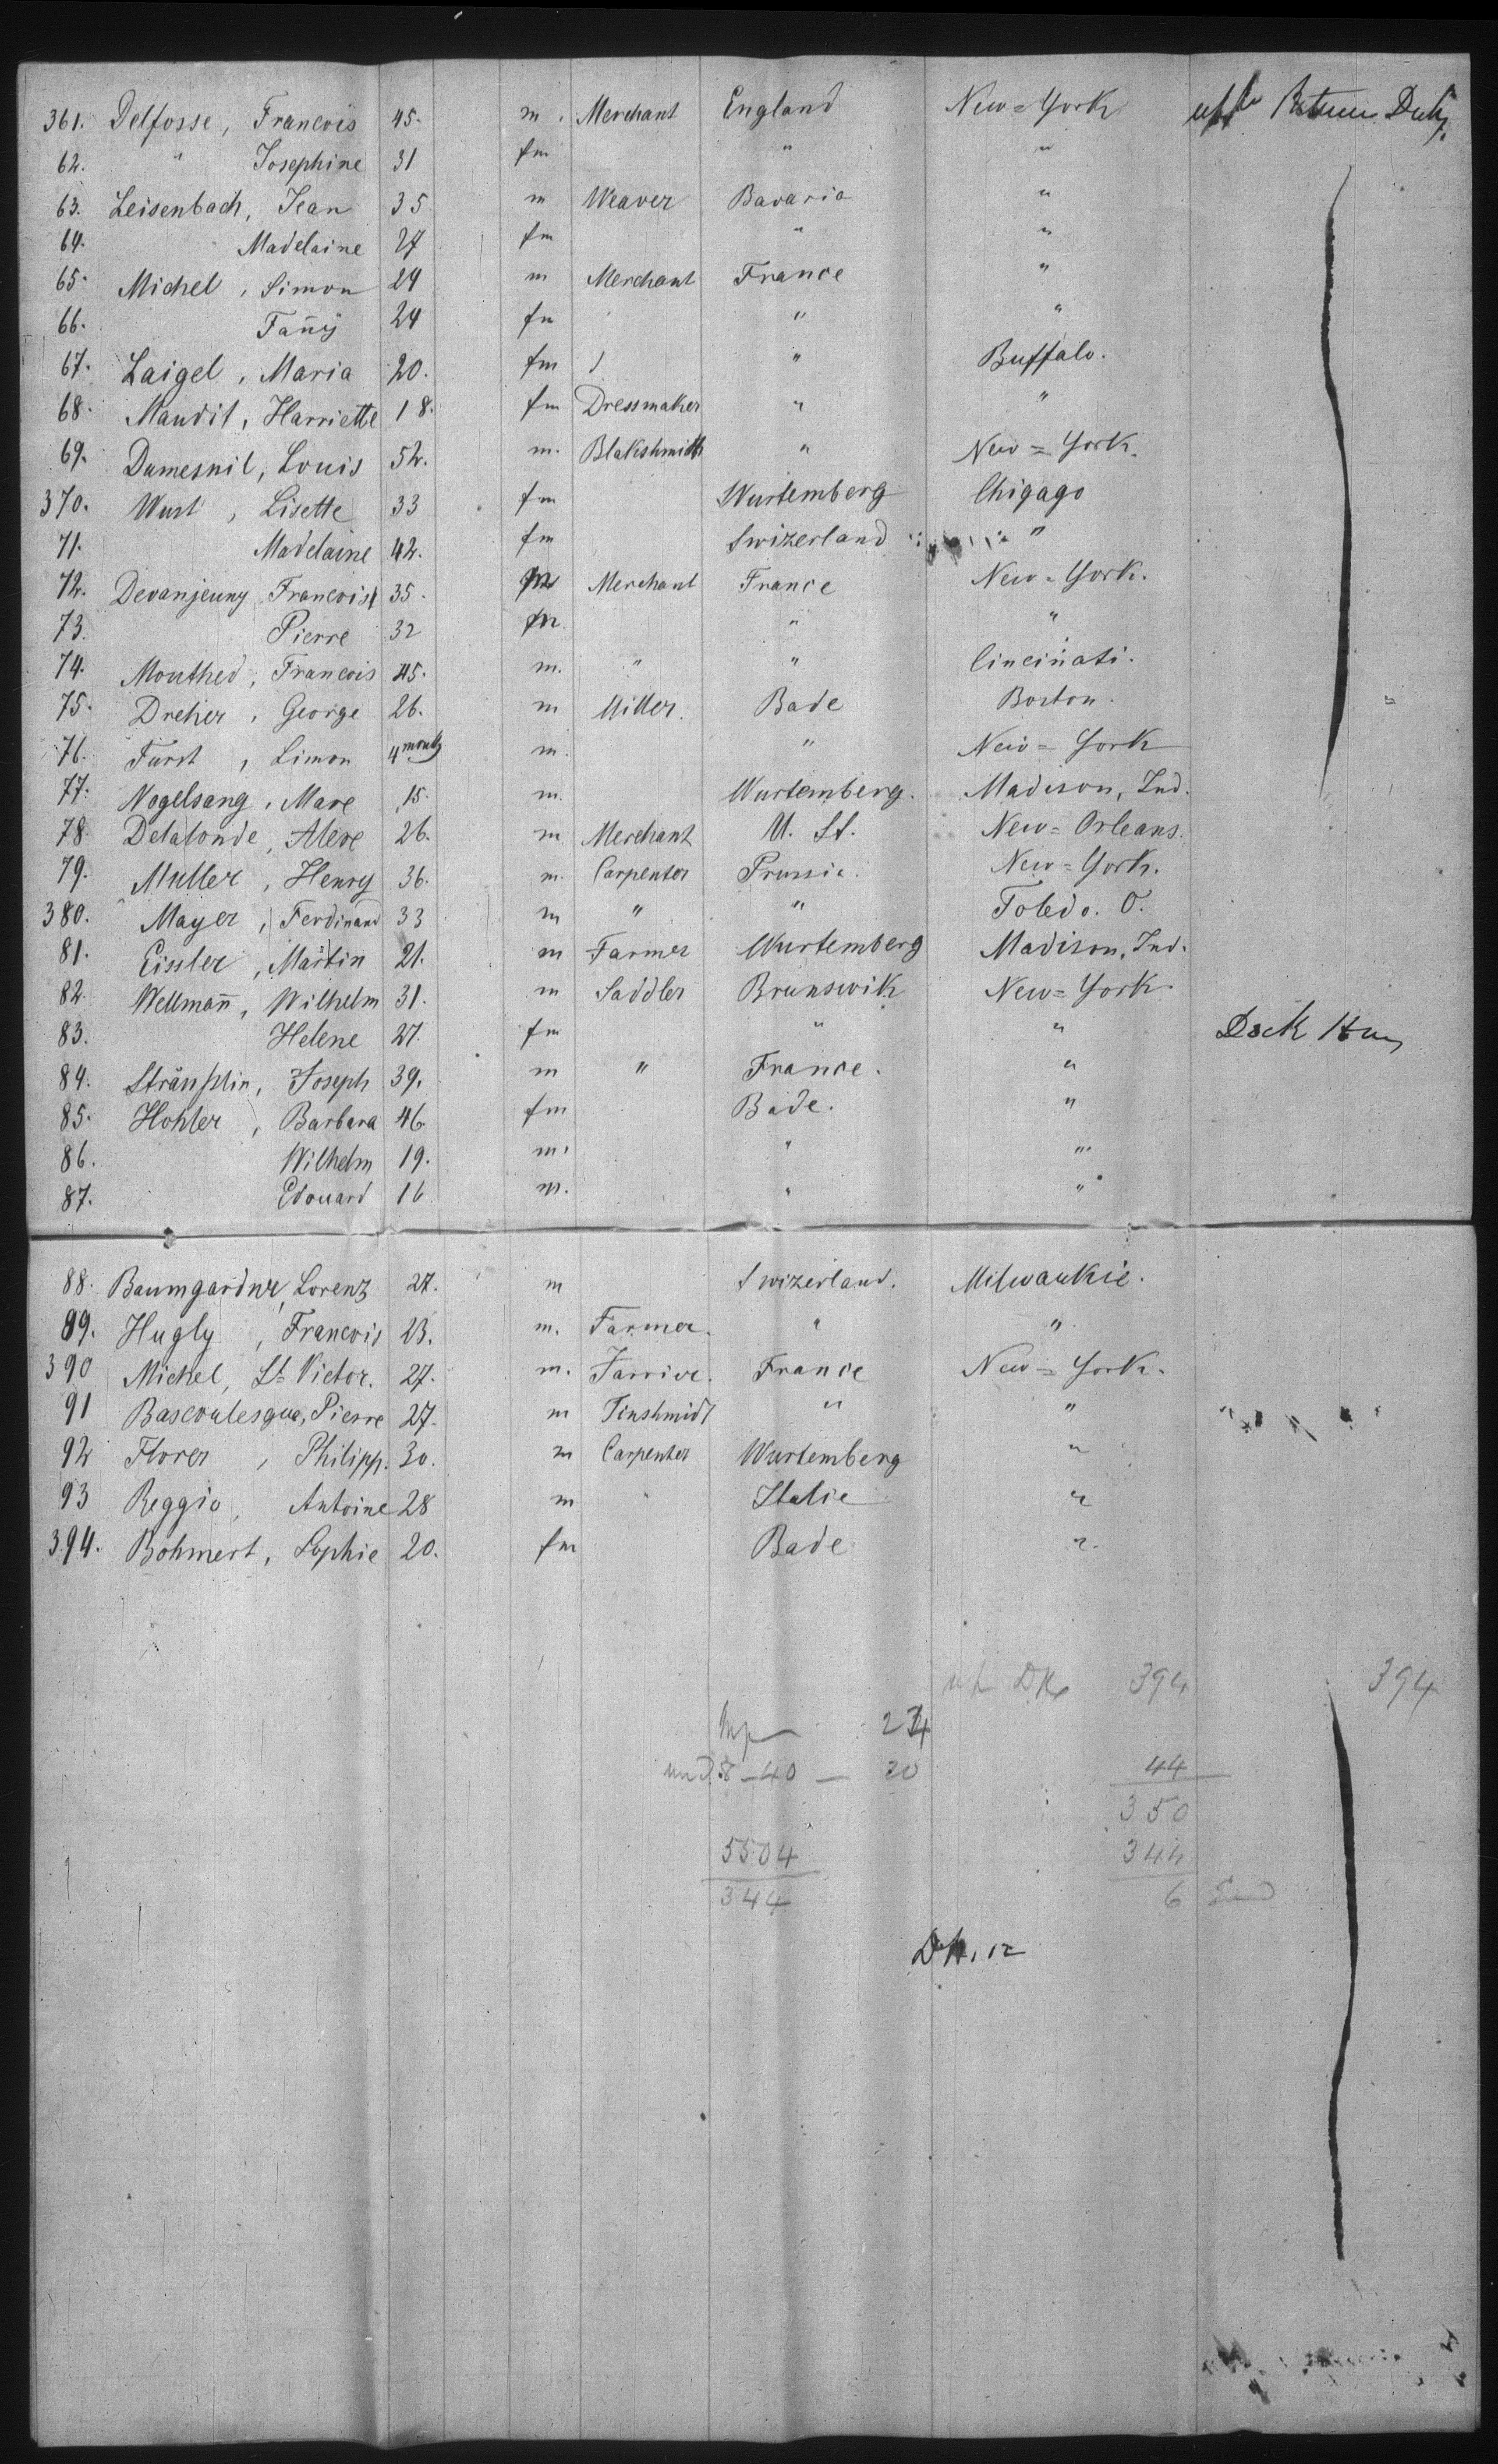 361. Delfosse, Francois 45. m. Merchant England New=York
62. " Josephine 31 fm " "
63. Leisenbach, Jean 35 m Weaver Bavaria "
64. Madelaine 27 fm " "
65. Michel, Simon 29 m Merchant France "
66. Fañy 24 fm " "
67. Laigel, Maria 20. fm " Buffalo.
68. Maudit, Harriette 18. fm Dressmaker " "
69. Dumesnil, Louis 52. m. Blakshmith " New=York.
370. Wust, Lisette 33 fm Wurtemberg Chigago
71. Madelaine 42. fm Swizerland "
72. Devanjeuny Francois 35. m Merchant France New=York.
73. Pierre 32 m " "
74. Mouthed, Francois 45. m. " " Cincinati.
75. Dreher, George 26. m Miller. Bade Boston.
76. Furst, Simon 4 months m. " New=York
77. Vogelsang, Marc 15. m. Wurtemberg. Madison, Ind.
78. Delalonde, Alexe 26. m Merchant U. St. New=Orleans.
79. Muller, Henry 36. m. Carpenter Prussia. New=York.
380. Mayer, Ferdinand 33 m " " Toledo. O.
81. Eissler, Martin 21. m Farmer Wurtemberg Madison, Ind.
82. Wellmañ, Wilhelm 31. m Saddler Brunswik New=York.
83. Helene 27. fm " "
84. Joseph 39. m " France. "
85. Hohler, Barbara 46. fm Bade. "
86. Wilhelm 19. m. " "
87. Edouard 16 m. " "
88. Baumgardner, Lorenz 27. m Swizerland. Milwaukie.
89. Hugly, Francois 23. m. Farmer. " "
390 Michel, St Victor. 27. m. France New=York.
91 Bascoulesque, Pierre 27. m Tinshmidt " "
92 Florer, Philipp. 30. m Carpenter Wurtemberg "
93 Reggio, Antoine 28 m " Italie "
394. Bohmert, Sophie 20. fm Bade "
394 394
24
und 8 — 40 — 20 44
350
5504 344
344 6